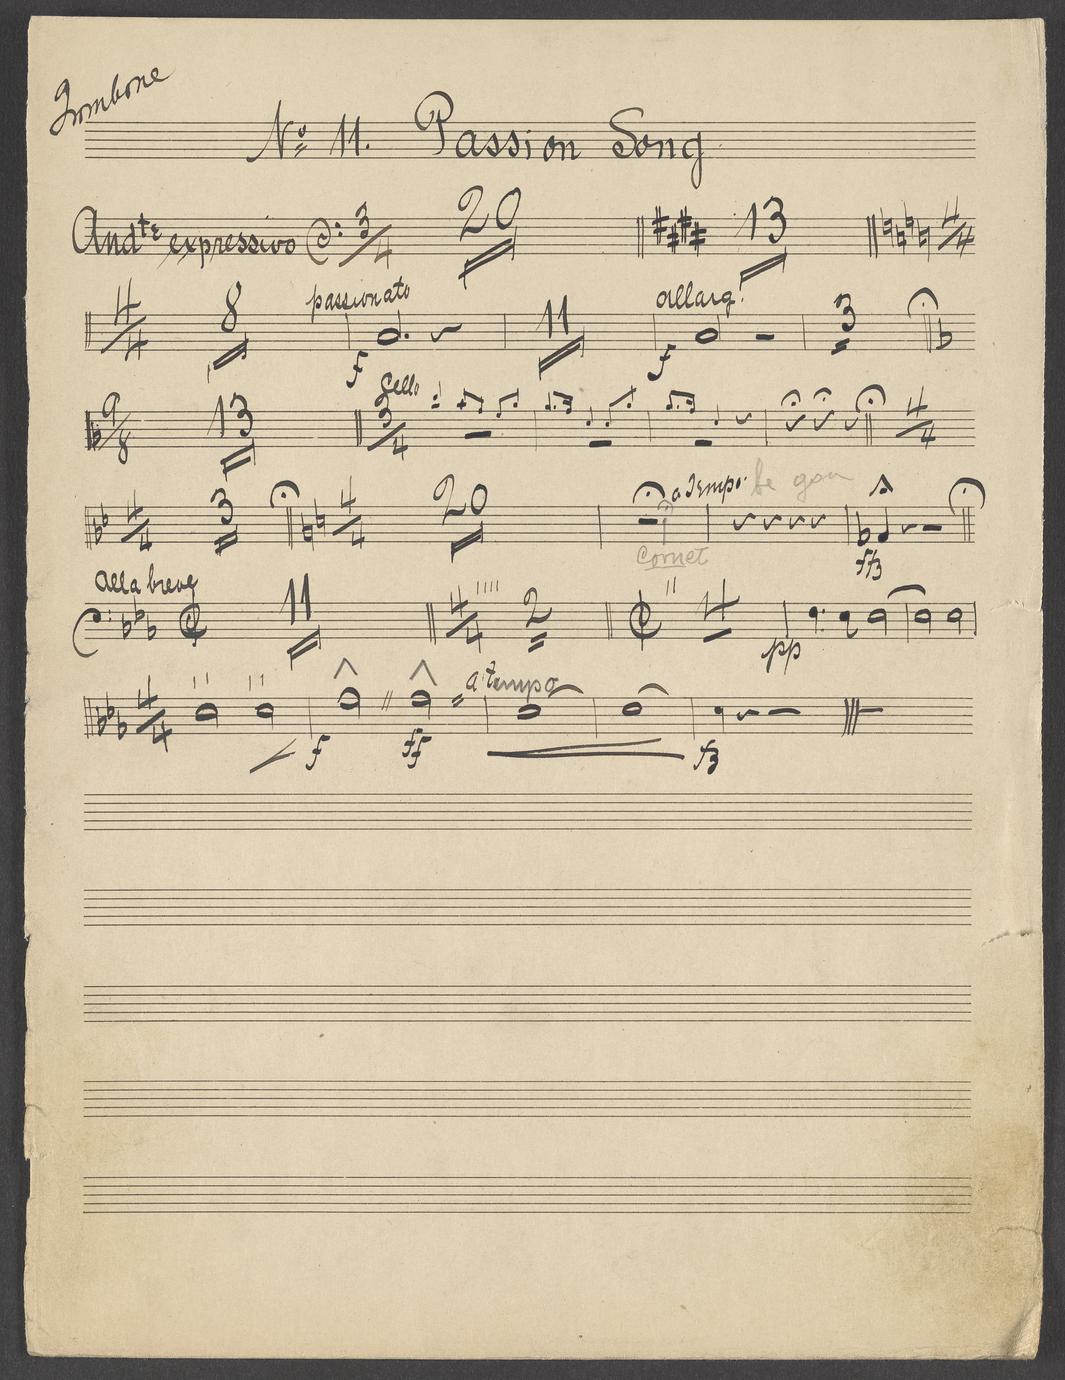 Trombone
No 11. Passion Song
Andte expressivo 3/4 20 13 4/4
4/4 8 passionato f 11 allarg. f 3
9/8 13 3/4 Cello 4/4
4/4 3 4/4 20 Cornet a tempo ffz
alla breve 11 4/4 2 4 pp
4/4 f ff a tempo fz